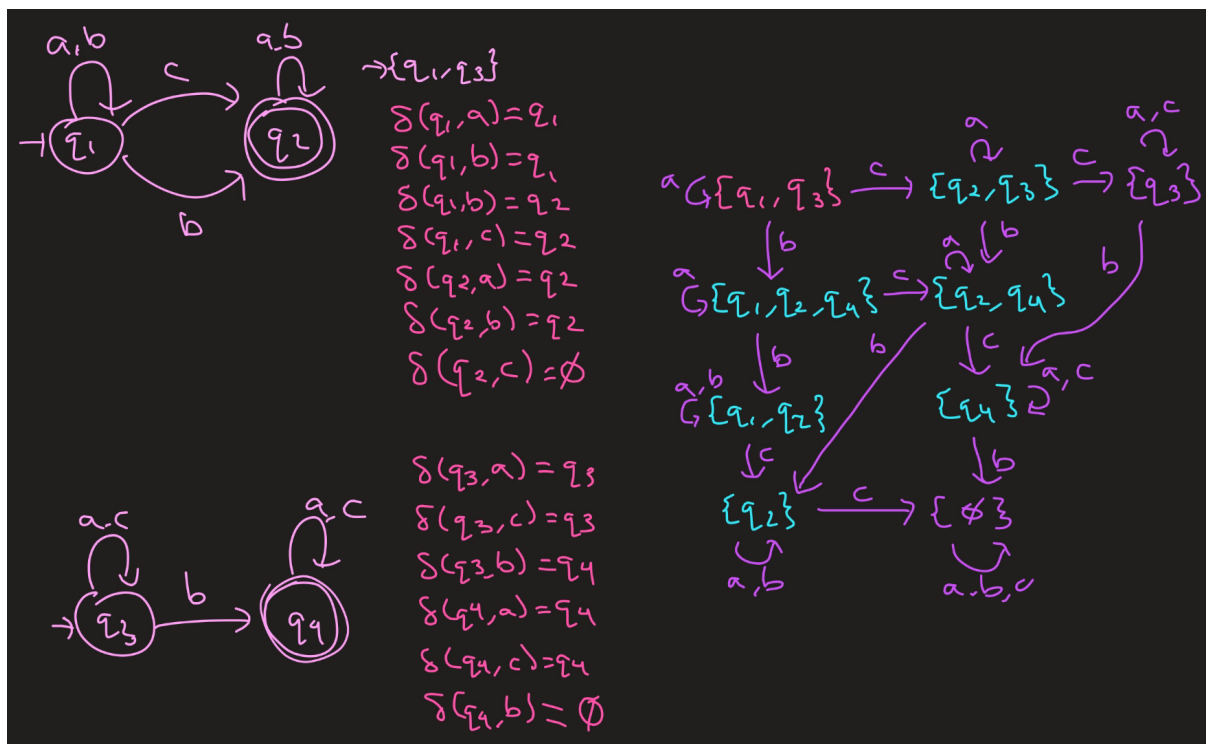 a,b
c
q1
q2
a,b
b
→{q1,q3}
δ(q1,a)=q1
δ(q1,b)=q1
δ(q1,b)=q2
δ(q1,c)=q2
δ(q2,a)=q2
δ(q2,b)=q2
δ(q2,c)=∅
a,c
q3
b
a,c
q4
δ(q3,a)=q3
δ(q3,c)=q3
δ(q3,b)=q4
δ(q4,a)=q4
δ(q4,c)=q4
δ(q4,b)=∅
a {q1,q3} c {q2,q3} c {q3}
a
a,c
b
b
b
a {q1,q2,q4} c {q2,q4}
a
b
b
c
a,b {q1,q2}
{q4} a,c
c
b
{q2} c {∅}
a,b
a,b,c